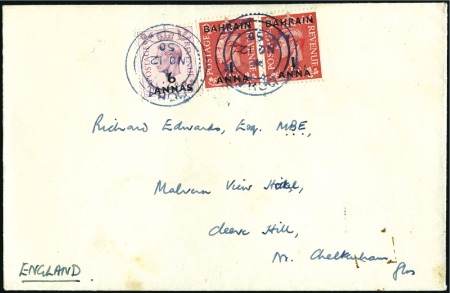 BAHRAIN BAHRAIN
POSTAGE REVENUE
6 ANNAS 1 ANNA 1 ANNA
NO 12 50
Richard Edwards, Esq. MBE,
Malvern View Hotel,
Cleeve Hill,
Nr. Cheltenham,
Glos
ENGLAND